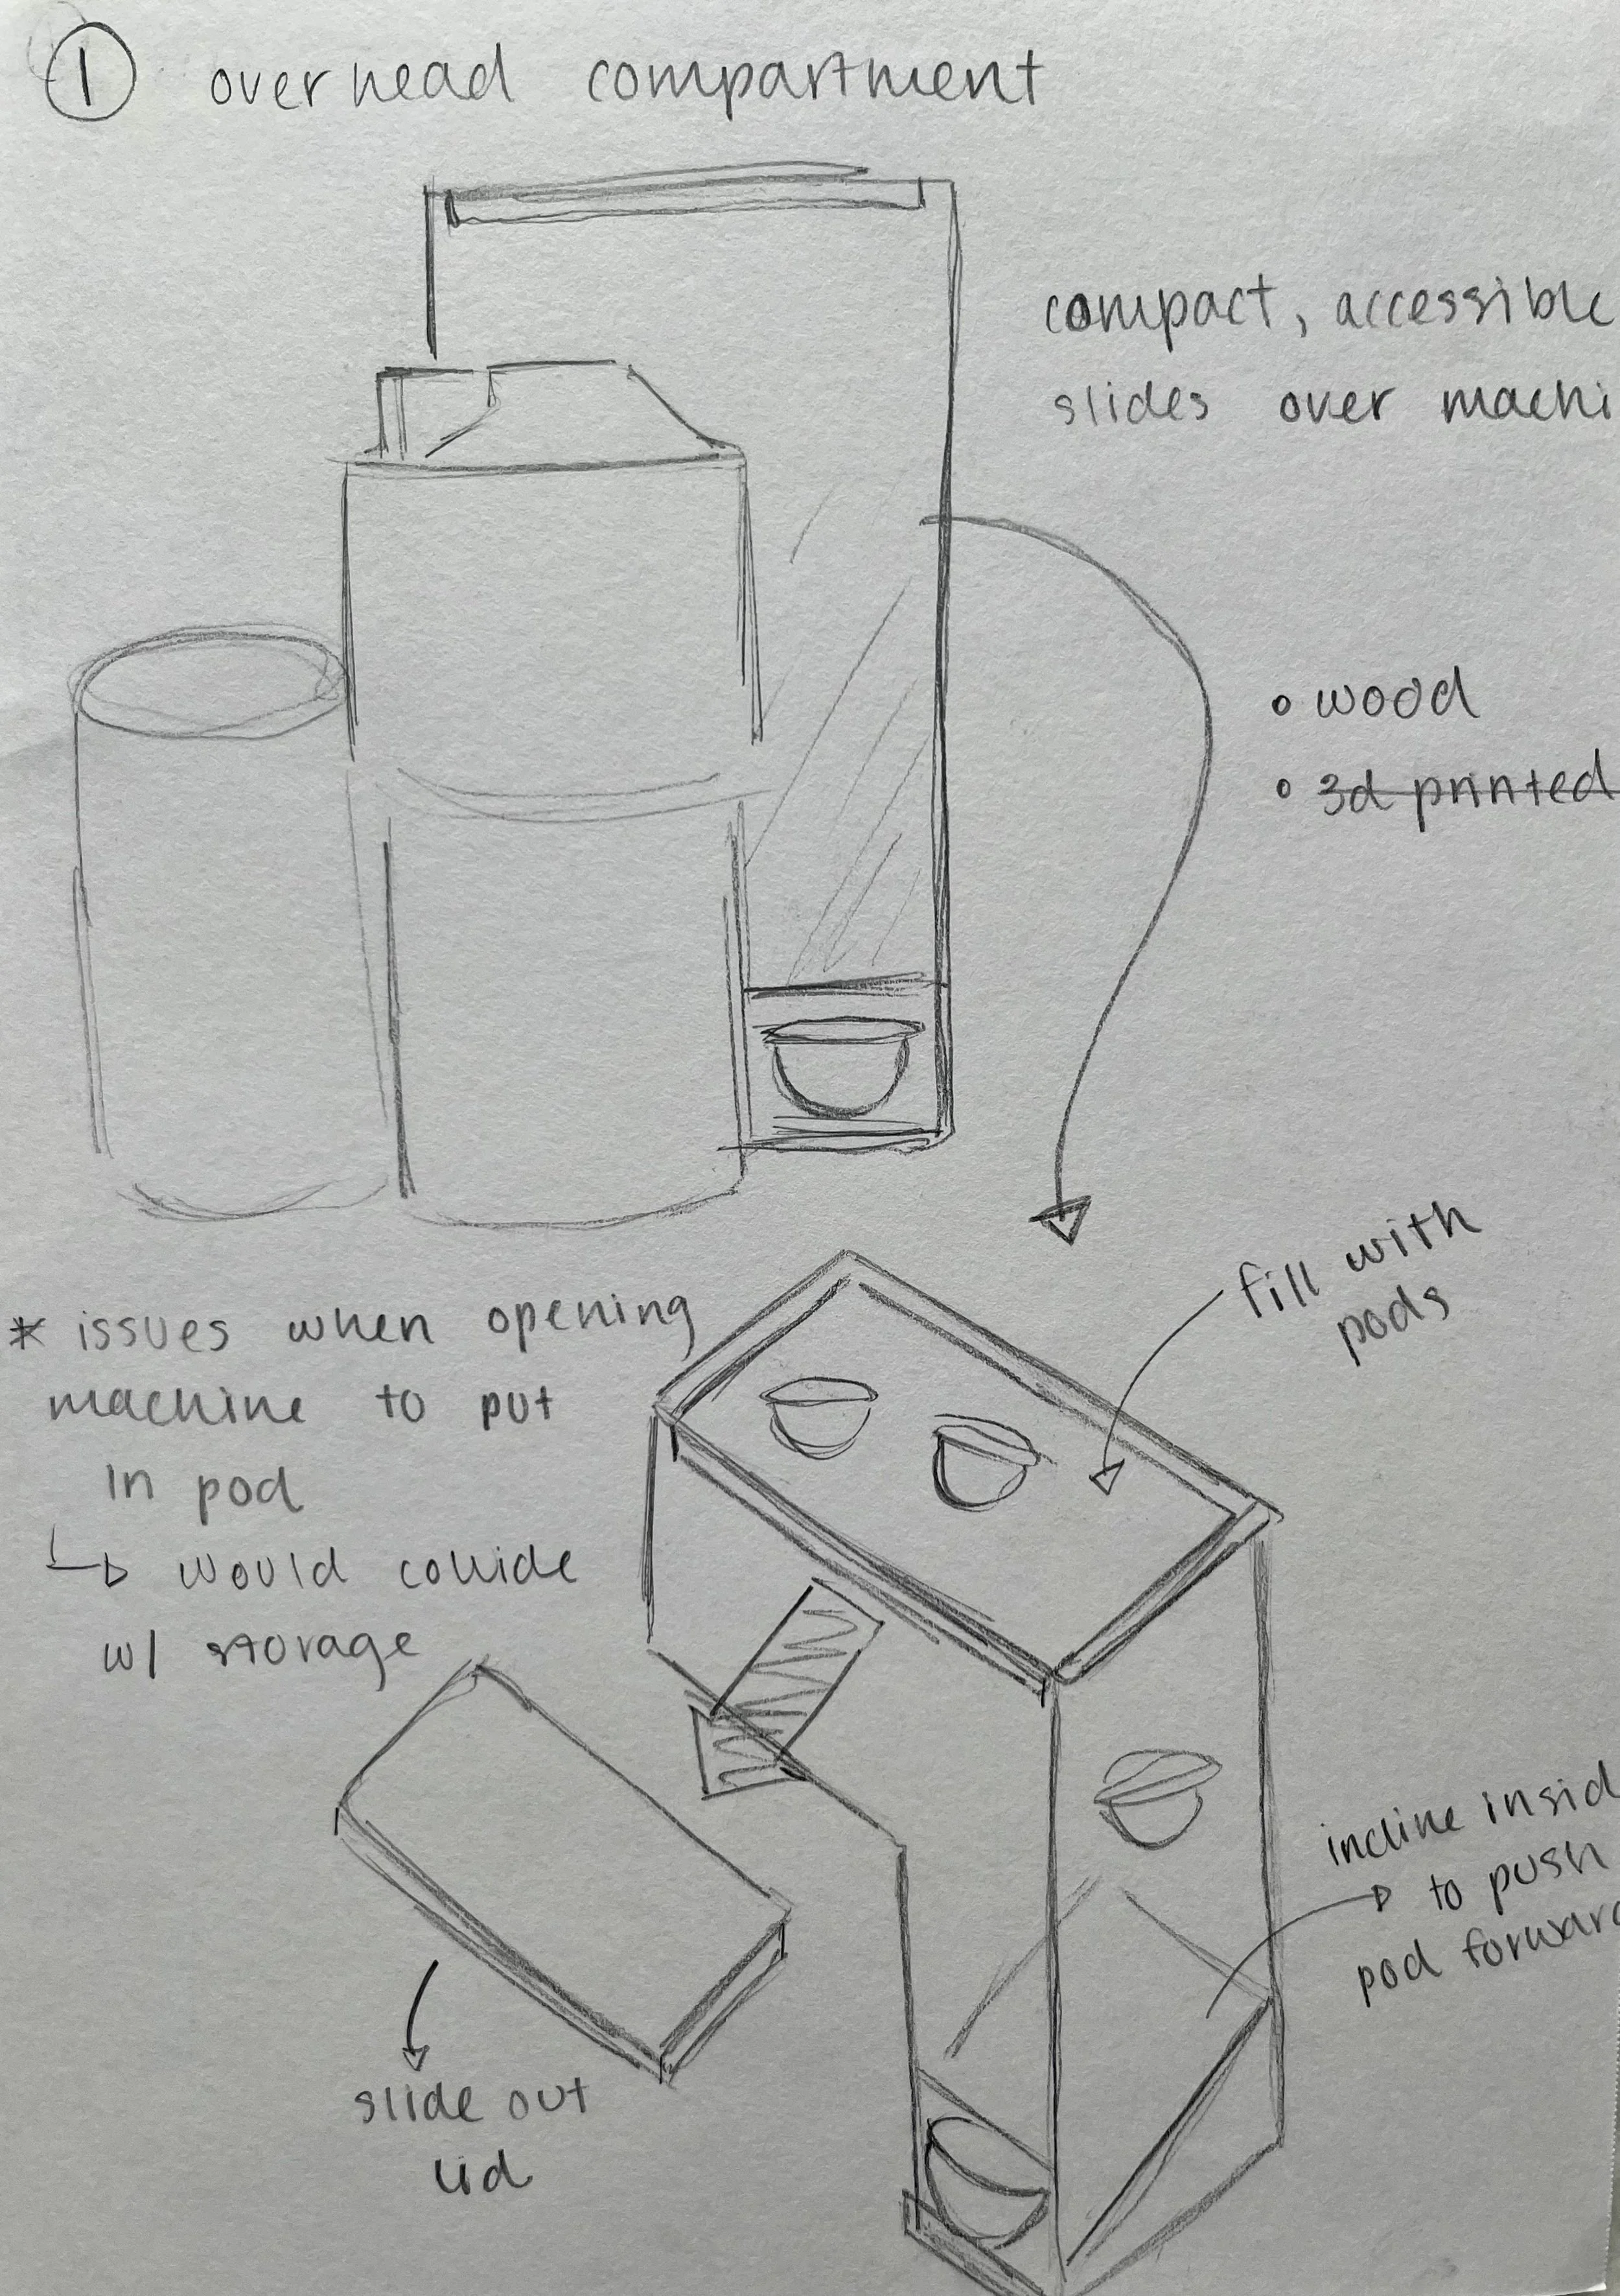 ① overhead compartment
compact, accessible
slides over machi
• wood
• 3d printed
fill with
pods
* issues when opening
machine to put
in pod
↳ would collide
w/ storage
incline insid
to push
pod forward
slide out
lid